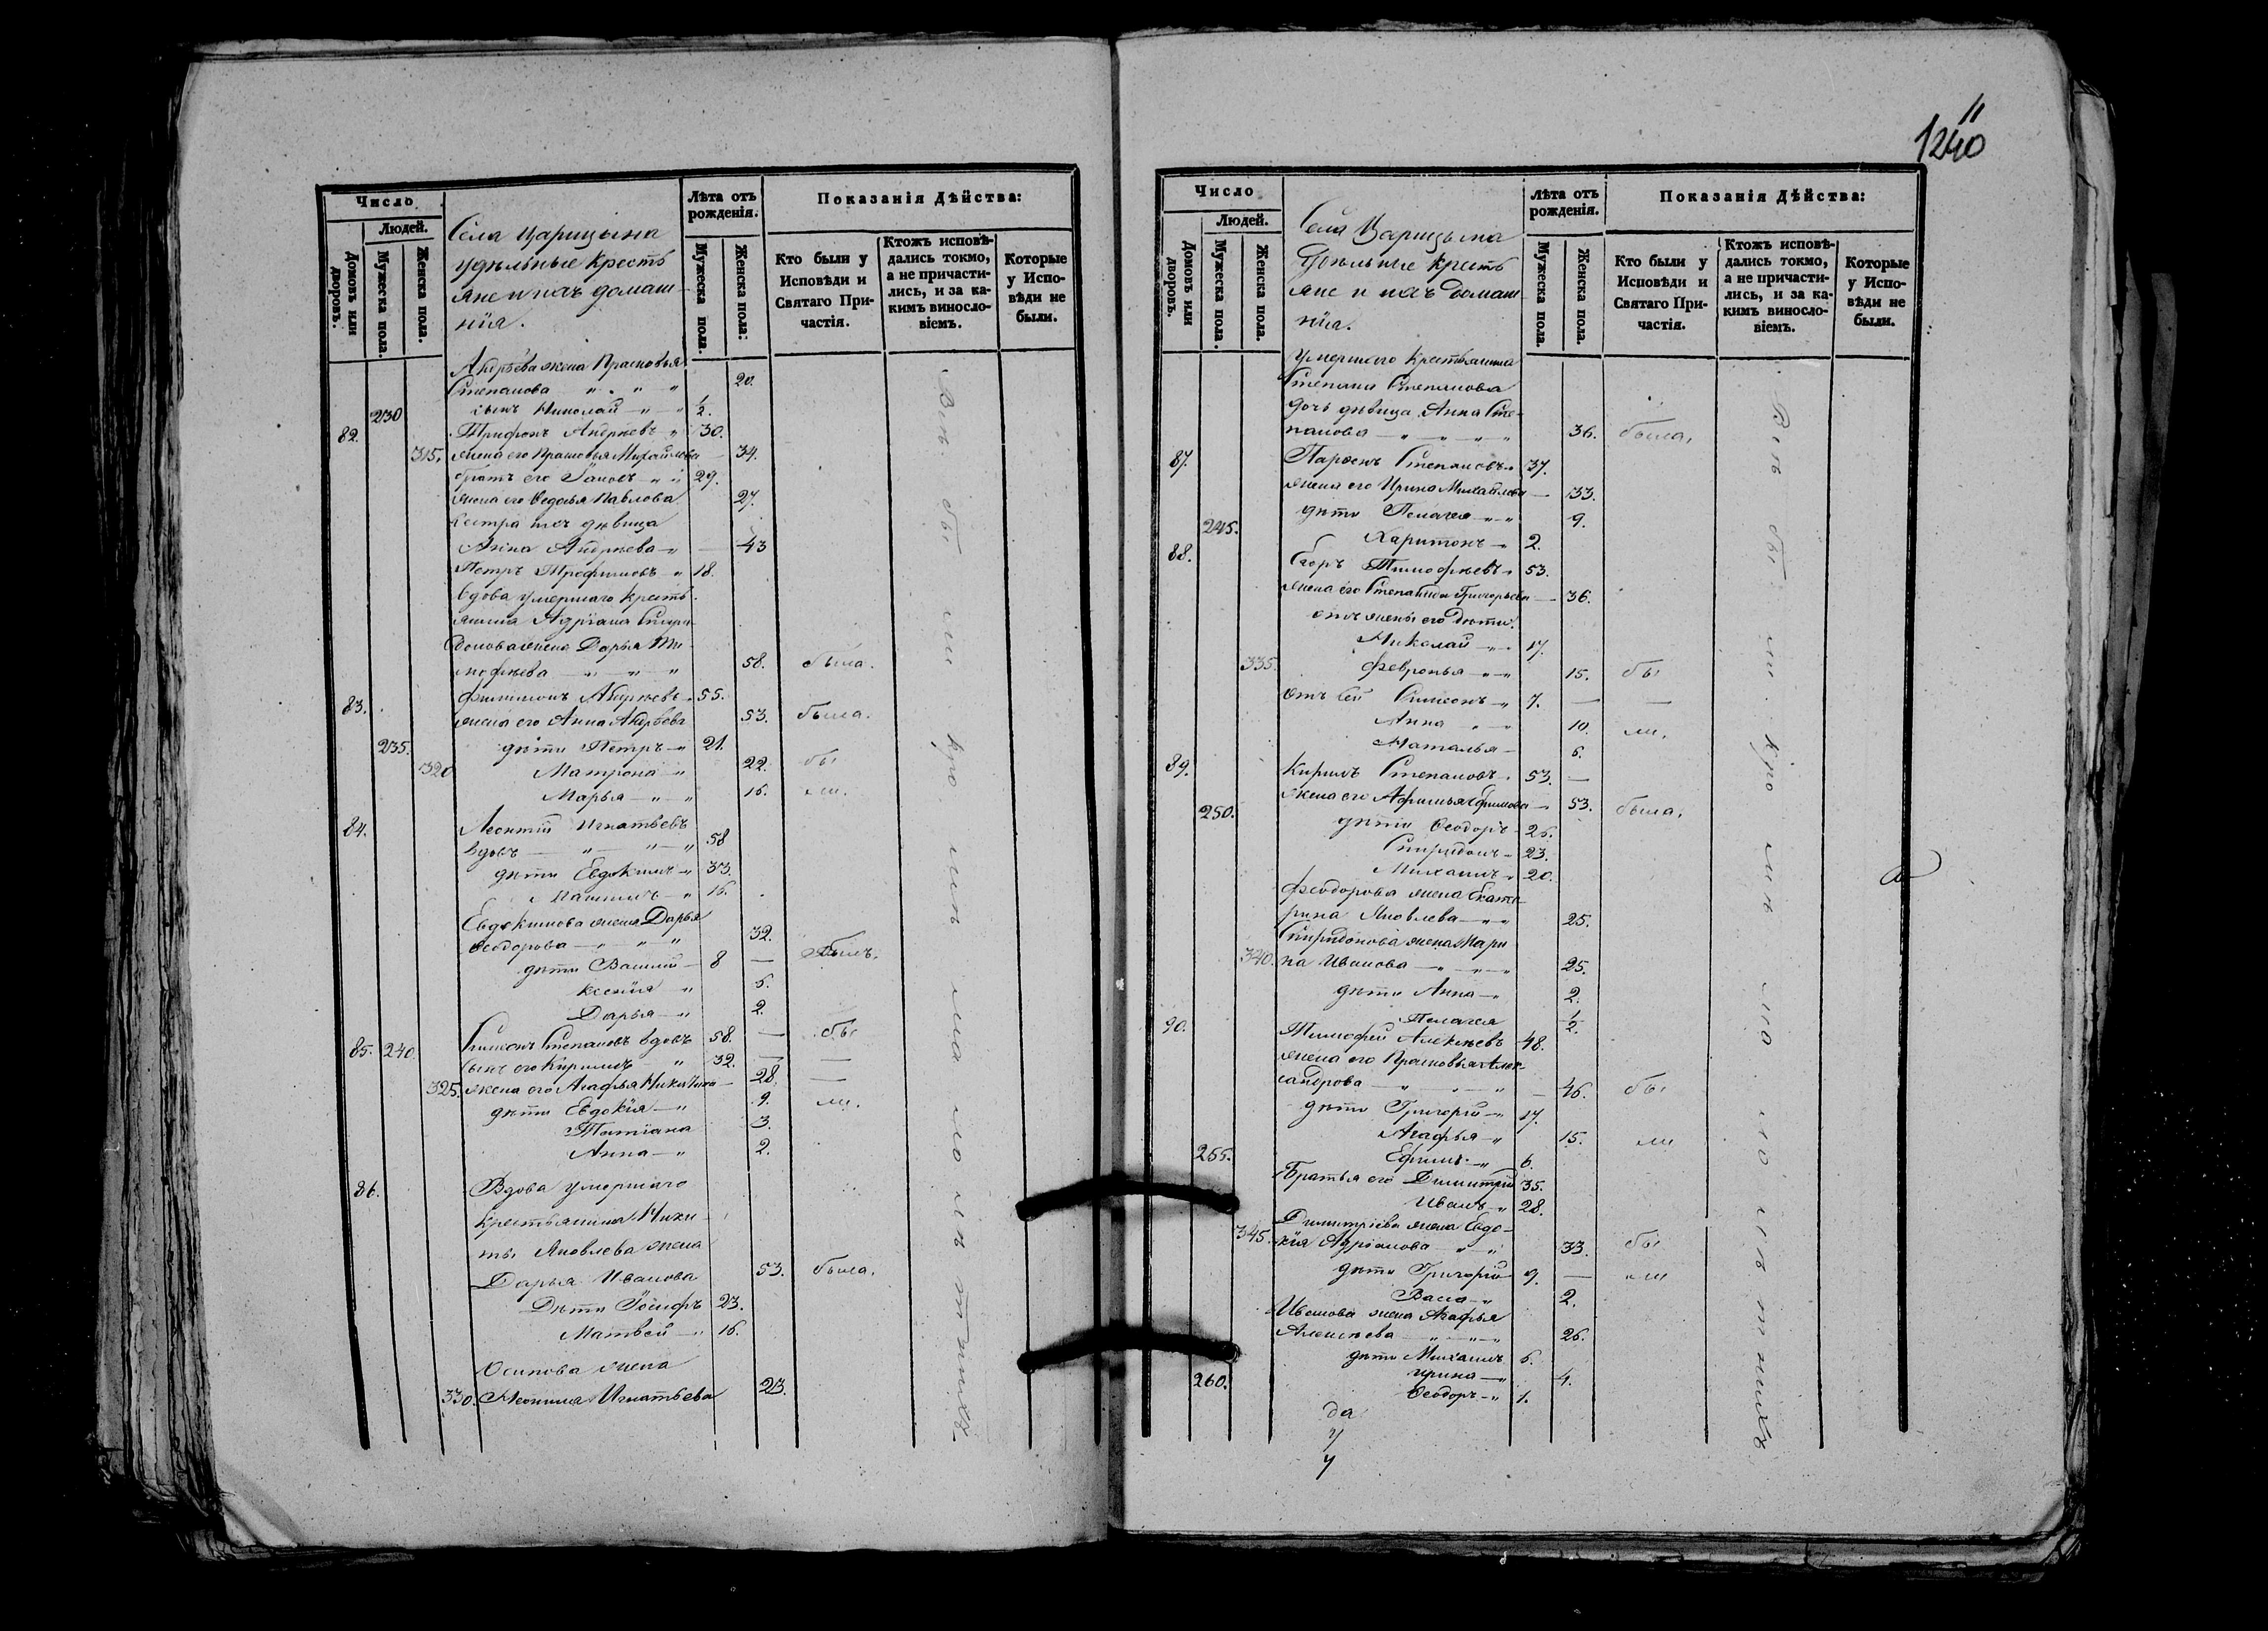 Число
Людей.
Домовъ или дворовъ.
Мужеска пола.
Женска пола.
Села Царицына
удѣльные кресть
яне и ихъ домаш-
нїя.
Лѣта отъ рожденія.
Мужеска пола.
Женска пола:
Показанія Дѣйства:
Кто были у Исповѣди и Святаго Причастія.
Ктожъ исповѣдались токмо, а не причастились, и за какимъ винословіемъ.
Которые у Исповѣди не были.
Андрѣева жена Прасковья
Степанова " " " 20.
230 сынъ Николай " 1/2.
82. Трифонъ Андрѣевъ " 30.
315. жена его Прасковья Михайлова 34.
братъ его Іаковъ " " 29.
жена его Ѳедосья Павлова 27.
сестра ихъ дѣвица
Анна Андрѣева " 43
Петръ Трофимовъ " 18.
вдова умершаго кресть
янина Адріана Спири
донова жена Дарья Ти
мофѣева " " 58. была.
83. Филимонъ Андрѣевъ 55.
жена его Анна Андрѣева 53. была.
235. дѣти Петръ " 21.
320 Матрона " 22. бы
Марья " " 16. ли.
84. Леонтій Игнатьевъ
вдовъ " " " 58
дѣти Евдокимъ " 33.
" 16.
Евдокимова жена Дарья
Ѳеодорова " " " 32.
дѣти Василій 8 — былъ.
Ксенія " 5.
Дарья " 2.
85. 240. Симеонъ Степановъ вдовъ 58. — бы
сынъ его Кириллъ " 32. — —
325. жена его Агафья Никитина 28. —
дѣти Евдокія " 9. ли.
Татіана 3.
Анна " 2.
86. Вдова умершаго
крестьянина Ники-
ты Яковлева жена
Дарья Иванова 53. была.
Дѣти Іосифъ 23.
Матвей " 16.
Осипова жена
330. Неонила Игнатьева 23.
1240
11
Число
Людей.
Домовъ или дворовъ.
Мужеска пола.
Женска пола.
Села Царицына
Удѣльные кресть
яне и ихъ домаш-
нїя.
Лѣта отъ рожденія.
Мужеска пола.
Женска пола.
Показанія Дѣйства:
Кто были у Исповѣди и Святаго Причастія.
Ктожъ исповѣдались токмо, а не причастились, и за какимъ винословіемъ.
Которые у Исповѣди не были.
Умершаго крестьянина
Степана Степанова
дочь дѣвица Анна Сте-
панова " " " 36. была.
87. Парѳенъ Степановъ " 37.
жена его Ирина Михайлова 33.
дѣти Пелагея " " 9.
245. Харитонъ " 2.
88. Егоръ Тимофѣевъ " 53.
жена его Степанида Григорьева 36.
отъ жены его дѣти.
Николай " 17.
335. Февронья " " 15. бы
отъ сей Симеонъ " 7. — —
Анна " " 10. ли.
Наталья 6.
89. Кириллъ Степановъ 53. —
жена его Афимья Ефимова 53. была.
250. дѣти Ѳеодоръ 25.
Спиридонъ " 23.
Михаилъ " 20.
Феодорова жена Екате-
рина Яковлева " " 25.
Спиридонова жена Мари
340. на Иванова " " " 25.
дѣти Анна " 2.
Пелагея 1/2.
90. Тимофей Алексѣевъ 48.
жена его Прасковья Алек
сандрова " " " 46. бы
дѣти Григорій " 17.
Агафья " 15. ли
255. Ефимъ " 6.
Братья его Димитрій 35.
Иванъ " 28.
Димитріева жена Евдо-
345. кія Адріанова " " 33. бы
дѣти Григорій 9. — ли
Васса " 2.
Иванова жена Агафья
Алексѣева " " " 26.
дѣти Михаилъ 6.
Ирина " 4.
260. Ѳеодоръ " 1.
да